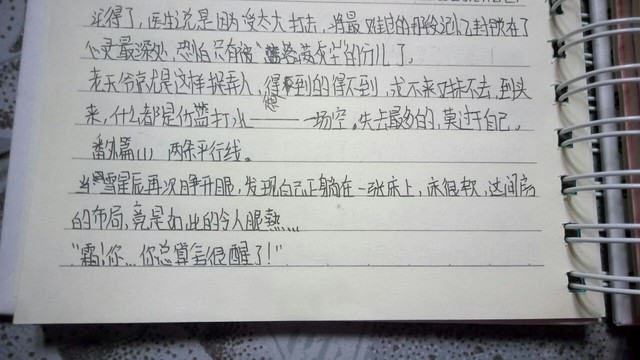 记得了，医生说是因为受太大打击，将最难过的那段记忆封锁在了
心灵最深处，恐怕只有被"尘封的份儿了。
老天爷就是这样捉弄人，得到的得不到，求不来推不去，到头
想
来，什么都是竹篮打水——一场空。失去最多的，莫过于自己。
番外篇(1) 两条平行线。
当雪星辰再次睁开眼，发现自己正躺在一张床上，床很软，这间房
的布局，竟是如此的令人眼熟…
"霜！你…你总算醒了！"